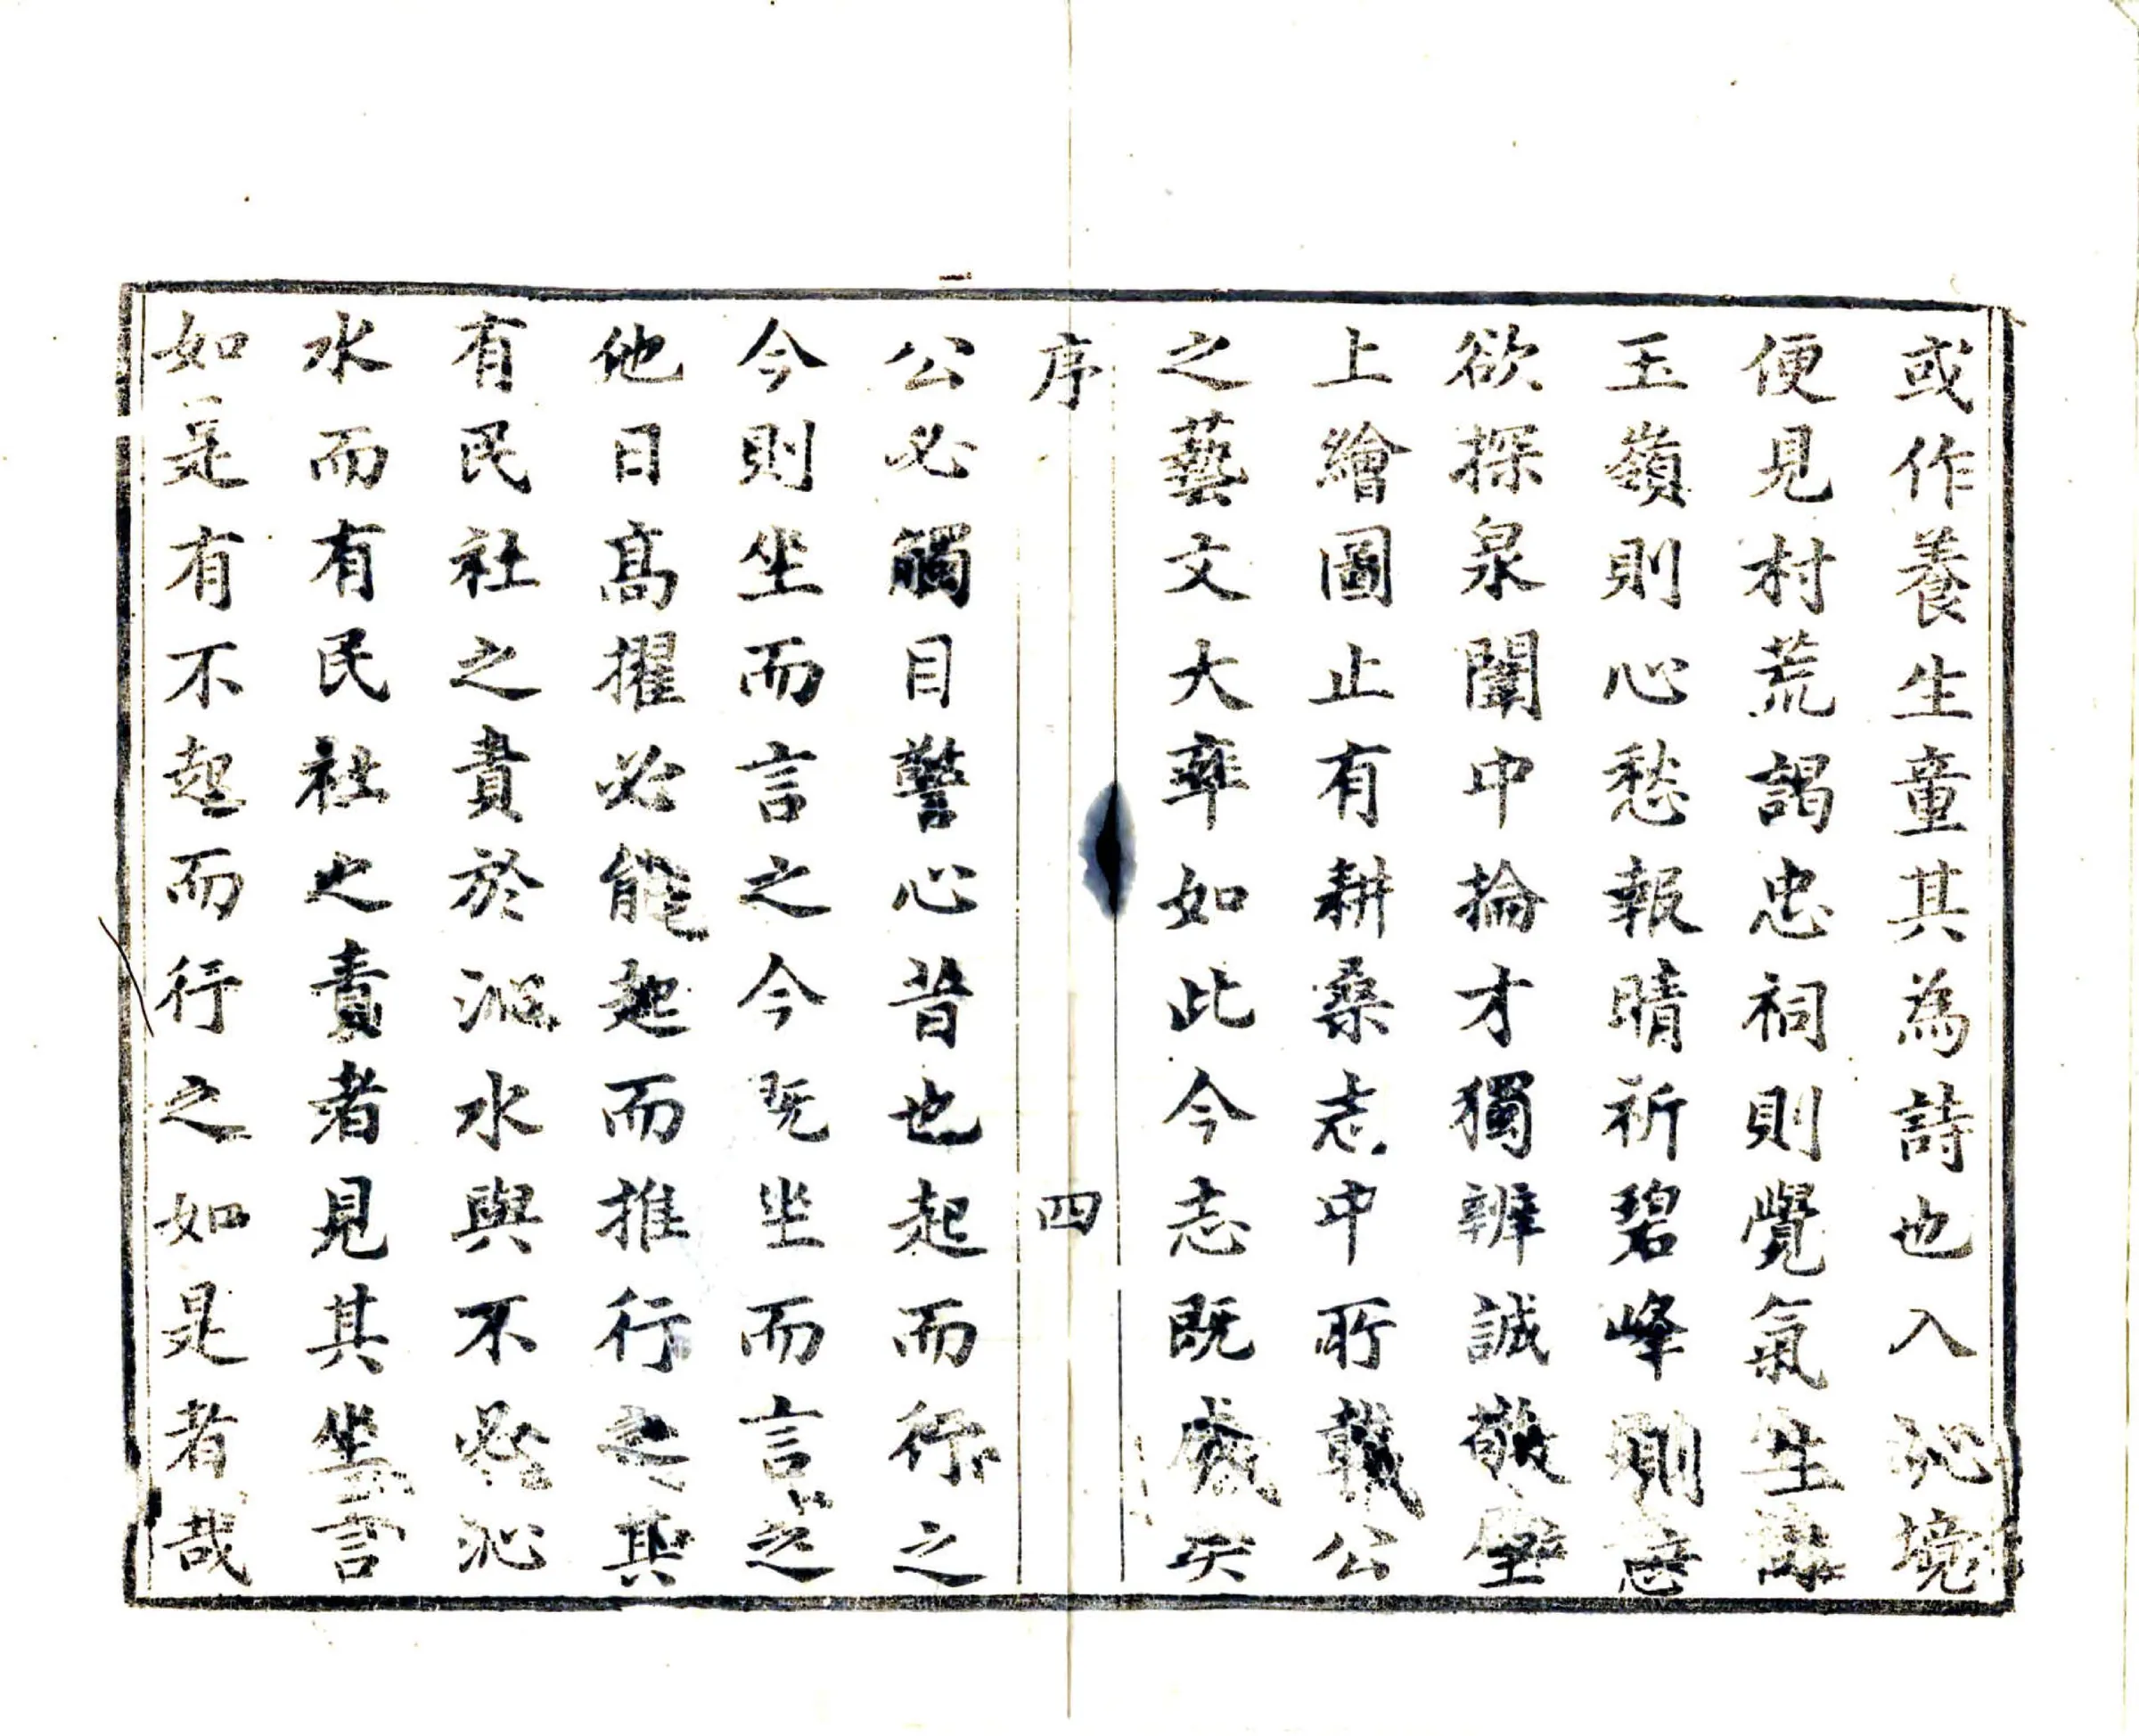 或作養生童其為詩也入沁境
便見村荒謁忠祠則覺氣生詠
玉嶺則心愁報晴祈碧峰則
欲探泉闈中掄才獨辨誠敬
上繪圖止有耕桑志中所載公
之藝文大率如此今志既成矣
序 四
公必觸目警心昔也起而行之
今則坐而言之今既坐而言之
他日高擢必能起而推行之其
有民社之責於沁水與不必沁
水而有民社之責者見其坐言
如是有不起而行之如是者哉